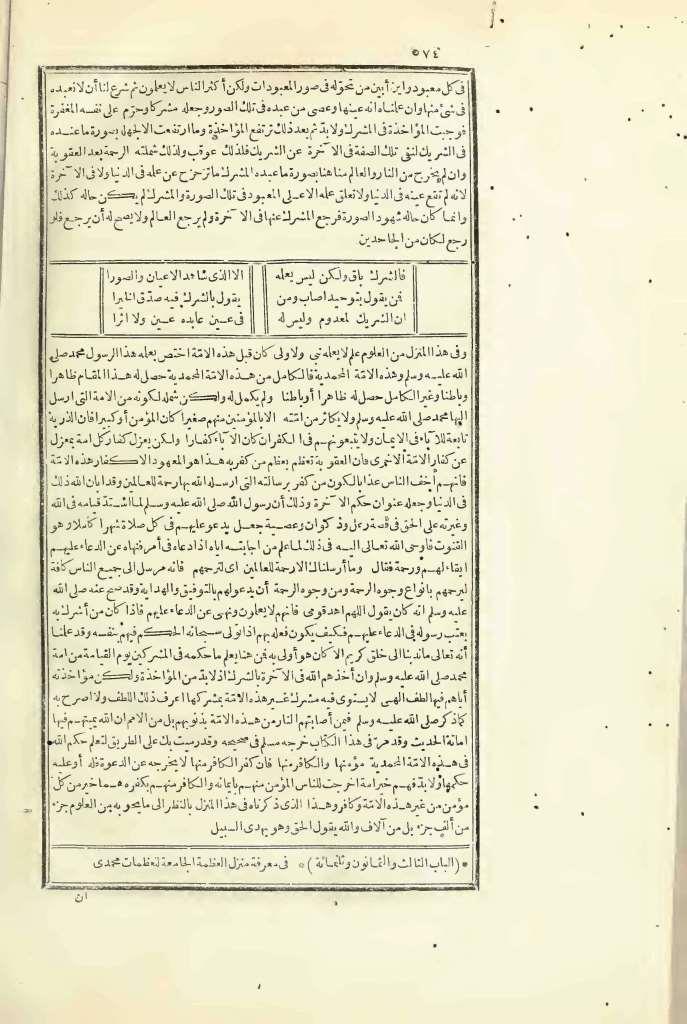 ٥٧٤
في كل معبود واين أبين من تحوله في صور المعبودات ولكن أكثر الناس لا يعلمون ثم شرع لنا أن لا نعبده
في شئ منها وان علمنا انه عينها وعصى من عبده في تلك الصور وجعله مشركا وحرم على نفسه المغفرة
فوجبت المؤاخذة في المشرك ولابد ثم بعد ذلك ترتفع المؤاخذة وما ارتفعت الا لجهل بصورة ما عنده
في الشريك لنفى تلك الصفة في الآخرة عن الشريك فلذلك عوقب ولذلك شملته الرحمة بعد العقوبة
وان لم يخرج من النار والعالم منا هنا بصورة ما عبده المشرك ما تزحزح عن علمه في الدنيا ولا في الآخرة
لانه لم تقع عينه في الدنيا ولا تعلق علمه الا على المعبود في تلك الصورة والمشرك لم يكن حاله كذلك
وانما كان حاله شهود الصورة فرجع المشرك عنها في الآخرة ولم يرجع العالم ولا يصح له أن يرجع فلو
رجع لكان من الجاحدين
فالشرك باق ولكن ليس يعلمه الا الذى شاهد الاعيان والصورا
فمن يقول بتوحيد اصاب ومن يقول بالشرك فيه صدق الخبرا
ان الشريك لمعدوم وليس له في عين عابده عين ولا اثرا
وفى هذا المنزل من العلوم علم لا يعلمه نبى ولا ولى كان قبل هذه الامة اختص بعلمه هذا الرسول محمد صلى
الله عليه وسلم وهذه الامة المحمدية فالكامل من هذه الامة المحمدية حصل له هذا المقام ظاهرا
وباطنا وغير الكامل حصل له ظاهرا أو باطنا ولم يكمل له ولكن شمله لكونه من الامة التى ارسل
اليها محمد صلى الله عليه وسلم ولا يكاثر من امته الا بالمؤمنين منهم صغيرا كان المؤمن أو كبيرا فان الذرية
تابعة للآباء في الايمان ولا يتبعونهم في الكفر ان كان الآباء كفارا ولكن يعزل كفار كل امة بمعزل
عن كفار الامة الاخرى فان العقوبة تعظم بعظم من كفر به هذا هو المعهود الا كفار هذه الامة
فانهم أخف الناس عذابا لكون من كفر برسالته التى ارسله الله بها رحمة للعالمين وقد ابان الله ذلك
في الدنيا وجعله عنوان حكم الآخرة وذلك أن رسول الله صلى الله عليه وسلم لما اشتد قيامه في الله
وغيرته على الحق في قصة رعل وذكوان وعصية جعل يدعو عليهم في كل صلاة شهرا كاملا وهو
القنوت فاوحى الله تعالى اليه في ذلك لما علم من اجابته اياه اذا دعاه في أمر فنهاه عن الدعاء عليهم
ابقاء لهم ورحمة فقال وما أرسلناك الا رحمة للعالمين اى لترحمهم فانه مرسل الى جميع الناس كافة
ليرحمهم بانواع وجوه الرحمة ومن وجوه الرحمة أن يدعو لهم بالتوفيق والهداية وقد صح عنه صلى الله
عليه وسلم انه كان يقول اللهم اهد قومى فانهم لا يعلمون ونهى عن الدعاء عليهم فاذا كان من أشرك به
يعتب رسوله في الدعاء عليهم فكيف يكون فعله بهم اذا تولى سبحانه الحكم فيهم بنفسه وقد علمنا
أنه تعالى ما ندبنا الى خلق كريم الا كان هو أولى به فمن هنا يعلم ما حكمه في المشركين يوم القيامة من امة
محمد صلى الله عليه وسلم وان أخذهم الله في الآخرة بالشرك اذ لابد من المؤاخذة ولكن مؤاخذته
اياهم فيها لطف الهى لا يستوى فيه مشرك غير هذه الامة بمشركها اعرف ذلك اللطف ولا اصرح به
كما ذكر صلى الله عليه وسلم فيمن أصابتهم النار من هذه الامة بذنوبهم بل من الامم ان الله يميتهم فيها
اماتة الحديث وقد مر في هذا الكتاب خرجه مسلم في صحيحه وقد رميت بك على الطريق لتعلم حكم الله
في هذه الامة المحمدية مؤمنها والكافر منها فان كفر الكافر منها لا يخرجه عن الدعوة فله أو عليه
حكمها ولابد فهم خير امة اخرجت للناس المؤمن منهم بايمانه والكافر منهم بكفره هما خير من كل
مؤمن من غير هذه الامة وكافر وهذا الذى ذكرناه في هذا المنزل بالنظر الى ما يحويه من العلوم جزء
من ألف جزء بل من آلاف والله يقول الحق وهو يهدى السبيل
* (الباب الثالث والثمانون وثلثمائة) * في معرفة منزل العظمة الجامعة لعظمات محمدى
ان